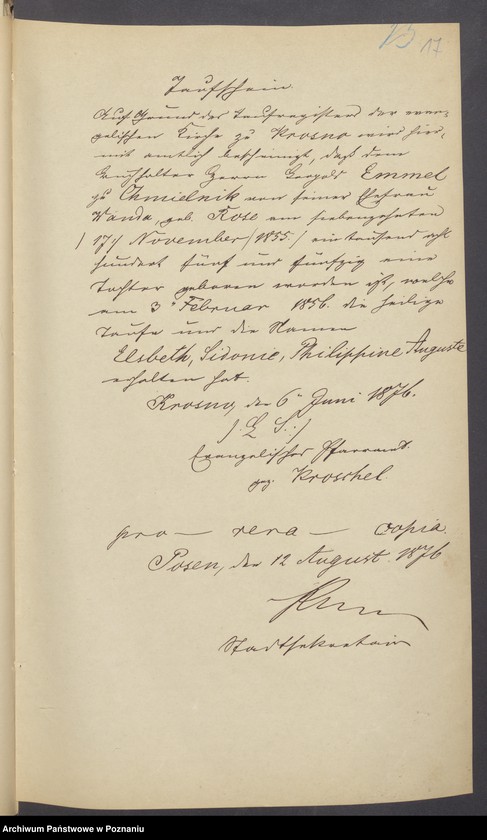 15 17
Taufschein.
Auf Grund des Taufregisters der evan-
gelischen Kirche zu Krosno wird hier-
mit amtlich bescheinigt, daß dem
Buchhalter Herrn Leopold Emmel
zu Chmielnik von seiner Ehefrau
Wanda, geb. Rose am siebenzehnten
/17/ November /1855./ eintausend acht
hundert fünf und fünfzig eine
Tochter geboren worden ist, welche
am 3 Februar 1856. die heilige
Taufe und die Namen
Elsbeth, Sidonie, Philippine Auguste
erhalten hat.
Krosno, den 6 Juni 1876.
/. L. S. ./
Evangelisches Pfarramt.
gez. Kroschel.
pro — vera — copia.
Posen, den 12 August 1876
Stadtsekretair
Archiwum Państwowe w Poznaniu